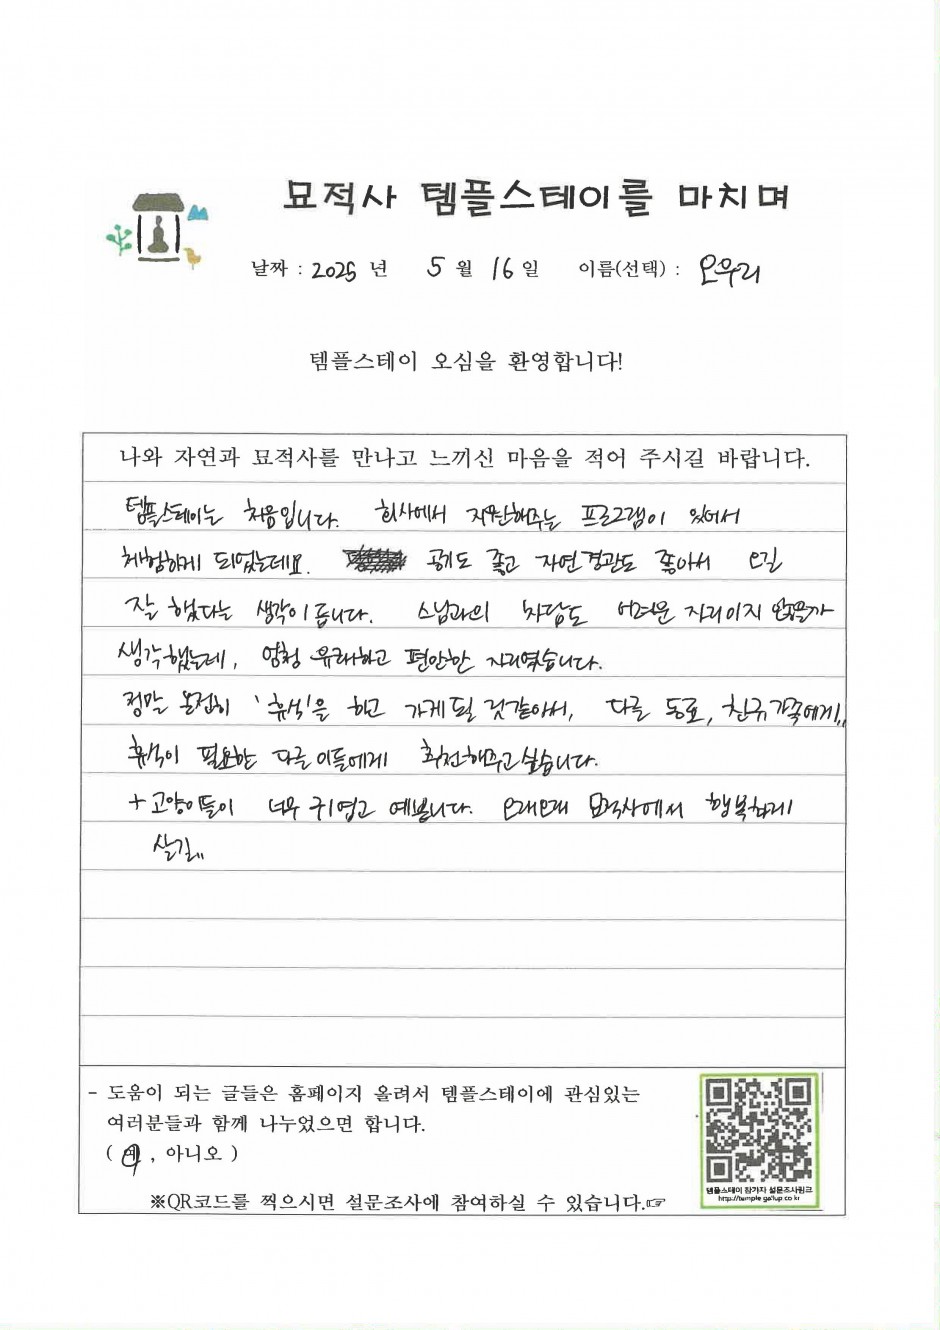 묘적사 템플스테이를 마치며
날짜 : 2025 년 5 월 16 일 이름(선택) : 오우리
템플스테이 오심을 환영합니다!
나와 자연과 묘적사를 만나고 느끼신 마음을 적어 주시길 바랍니다.
템플스테이는 처음입니다. 회사에서 지원해주는 프로그램이 있어서
체험하게 되었는데요. 공기도 좋고 자연경관도 좋아서 오길
잘 했다는 생각이 듭니다. 스님과의 차담도 어려운 자리이지 않을까
생각했는데, 엄청 유쾌하고 편안한 자리였습니다.
정말 온전히 '휴식'을 하고 가게 될 것 같아서, 다른 동료, 친구 가족에게,,
휴식이 필요한 다른 이들에게 추천해주고 싶습니다.
+ 고양이들이 너무 귀엽고 예쁩니다. 오래오래 묘적사에서 행복하게
살길,,
- 도움이 되는 글들은 홈페이지 올려서 템플스테이에 관심있는
여러분들과 함께 나누었으면 합니다.
( 예 , 아니오 )
템플스테이 참가자 설문조사링크
http://temple.gallup.co.kr
※QR코드를 찍으시면 설문조사에 참여하실 수 있습니다.☞